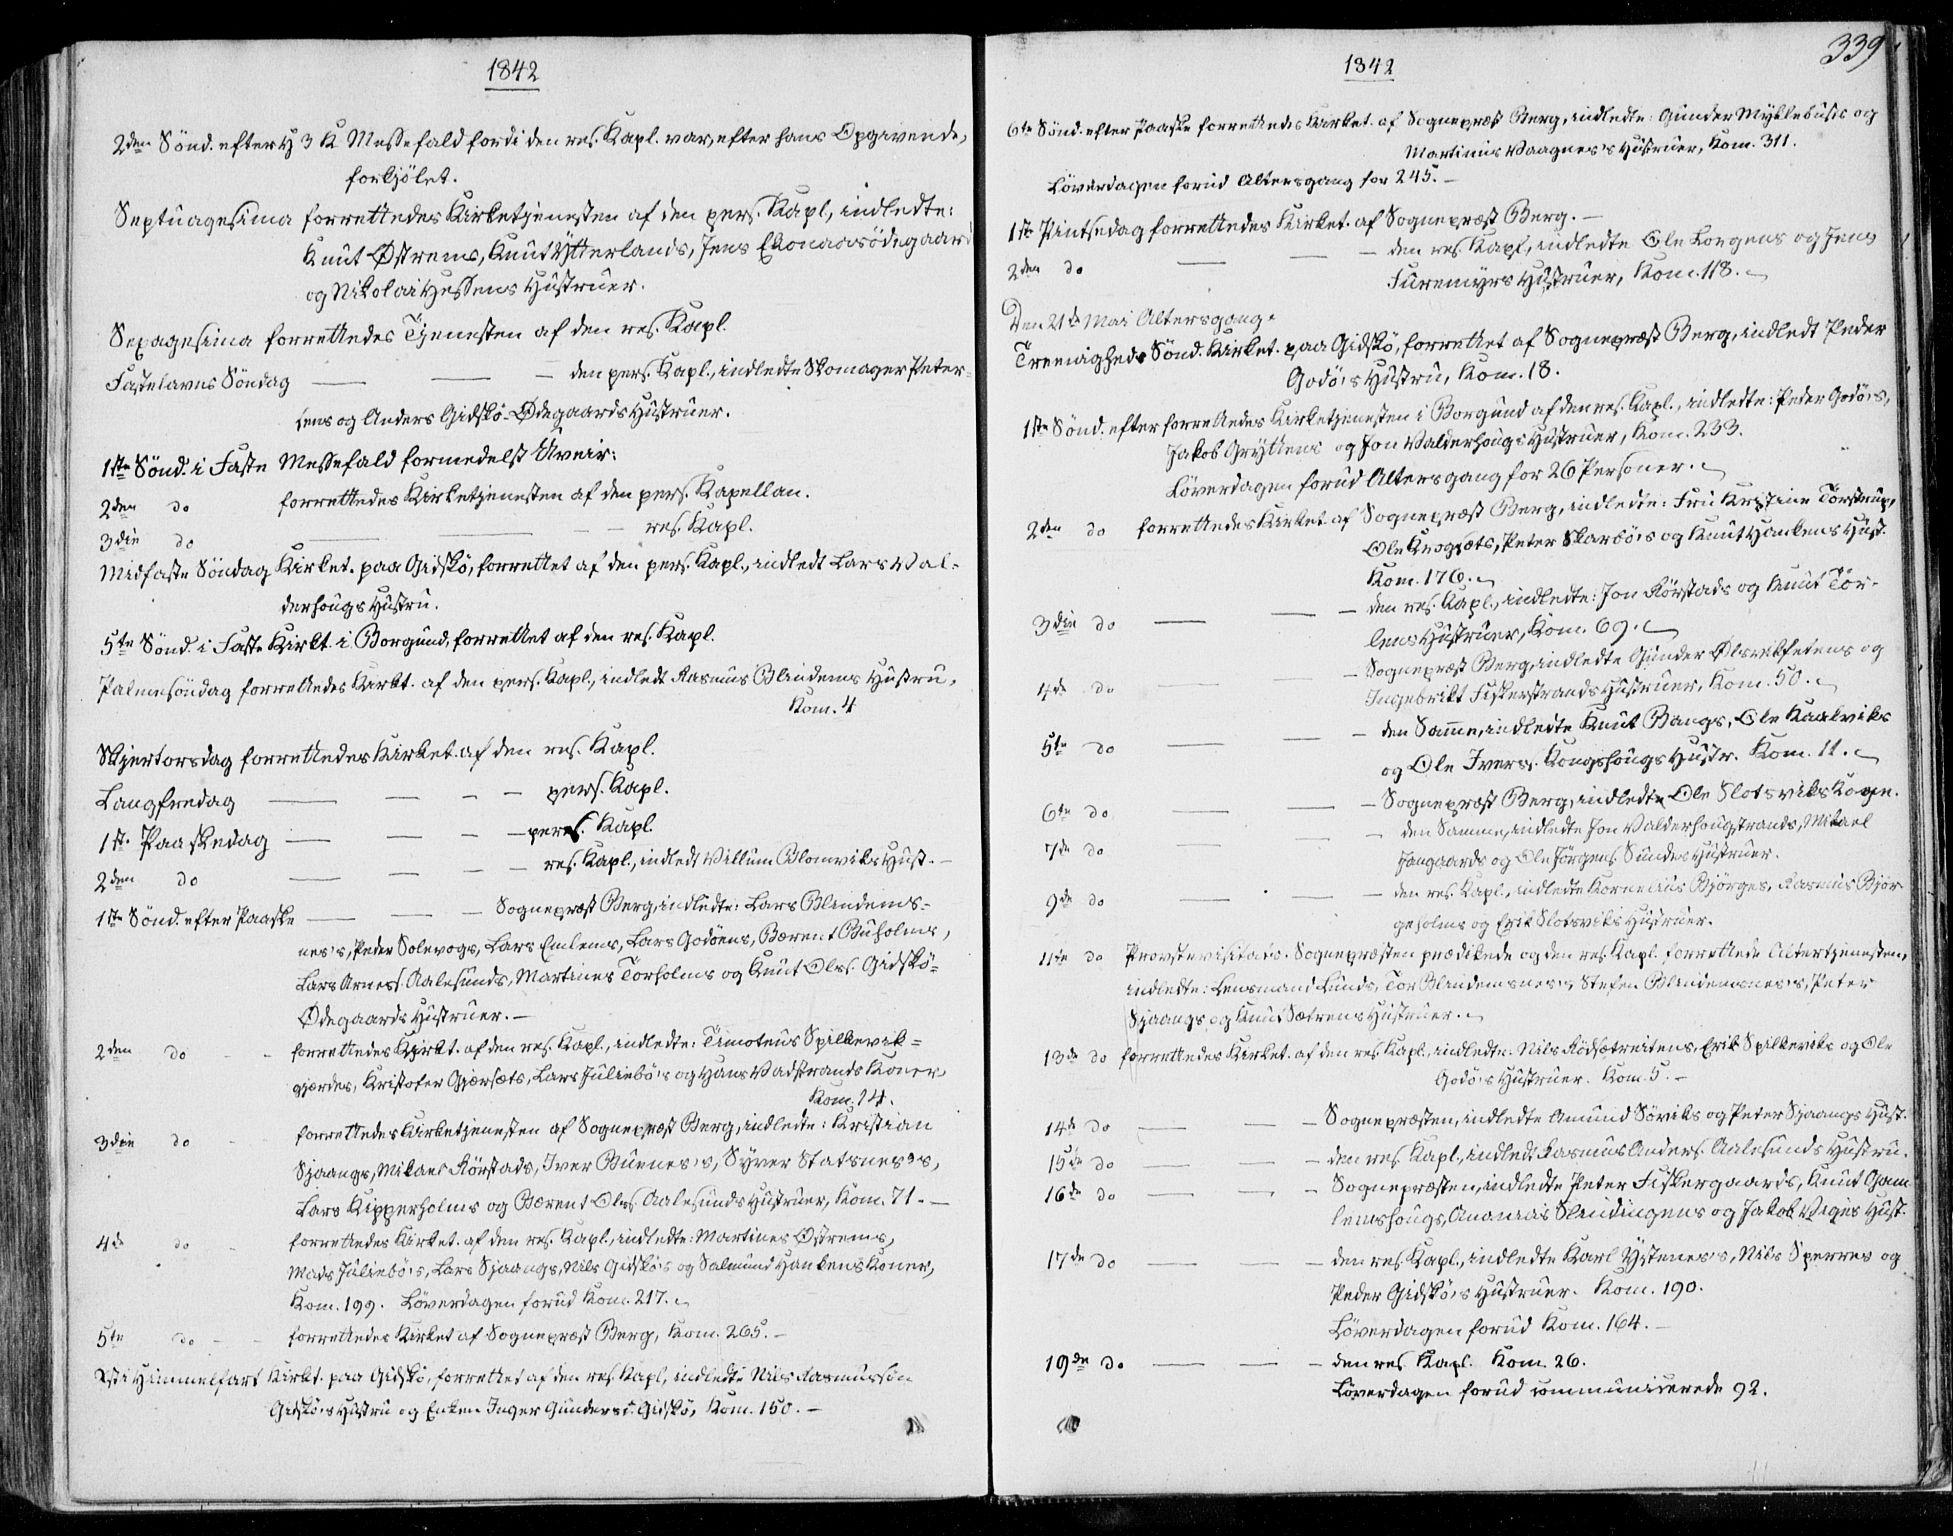 1842
2den Sönd. efter H 3 K Messefald fordi den res. Kapl. var, efter hans Opgivende,
forkjölet.
Septuagesima forrettedes Kirketjenesten af den pers. Kapl, indledte:
Knut Östrems, Knut Ytterlands, Jens Ekonaasödegaard
og Nikolai Hessens Hustruer.
Sexagesima forrettedes Tjenesten af den res. Kapl.
Fastelavns Söndag — — — den pers. Kapl., indledte Skomager Peter-
sens og Anders Gidskö-Ödegaards Hustruer.
1ste Sönd. i Faste Messefald formedelst Uveir.
2den do forrettedes Kirketjenesten af den pers. Kapellan.
3die do — — — res. Kapl.
Midfaste Söndag Kirket. paa Gidskö, forrettet af den pers. Kapl., indledt Lars Val-
derhougs Hustru.
5te Sönd. i Faste Kirkt. i Borgund, forrettet af den res. Kapl.
Palmesöndag forrettedes Kirkt. af den pers. Kapl., indledt Rasmus Blindems Hustru,
Kom. 4
Skjertorsdag forrettedes Kirket. af den res. Kapl.
Langfredag — — — — pers. Kapl.
1ste Paaskedag — — — — pers. Kapl.
2den do — — — — res. Kapl., indledt Villum Blomviks Hust. —
1ste Sönd. efter Paaske — — — Sognepræst Berg, indledte: Lars Blindems-
nes's, Peder Solevogs, Lars Emlems, Lars Godöens, Bærent Buholms,
Lars Arness. Aalesunds, Martines Torholms og Knut Olss. Gidskö-
Ödegaards Hustruer. —
2den do - - forrettedes Kirkt. af den res. Kapl., indledte: Timoteus Spilkevik-
gjerdes, Kristofer Gjærsets, Lars Juliebö's og Hans Vadstrands Koner,
Kom. 14.
3die do - forrettedes Kirketjenesten af Sognepræst Berg, indledte: Kristian
Sjaangs, Mikael Rörstads, Iver Buenes's, Syver Statsnes's,
Lars Kipperholms og Bærent Olss. Aalesunds Hustruer, Kom. 71. —
4de do - forrettedes Kirket. af den res. Kapl., indledte: Martines Östrems,
Mads Juliebö's, Lars Sjaangs, Nils Gidskö's og Salmund Hankens Koner,
Kom. 199. Löverdagen forud Kom. 217.
5te do - - forrettedes Kirket af Sognepræst Berg, Kom. 265. —
Xsti Himmelfart Kirkt. paa Gidskö, forrettet af den res. Kapl, indledte Nils Rasmussön
Gidskö's Hustru og Enken Inger Gundersd. Gidskö, Kom. 150. —
339
1842
6te Sönd. efter Paaske forrettedes Kirket. af Sognepræst Berg, indledte: Gunder Myklebusts og
Martinus Vaagnes's Hustruer, Kom. 311.
Löverdagen forud Altersgang for 245. —
1ste Pintsedag forrettedes Kirket. af Sognepræst Berg. —
2den do — — — den res. Kapl, indledte Ole Longens og Jens
Furemyrs Hustruer, Kom. 118.
Den 21de Mai Altersgang.
Treenigheds Sönd. Kirket. paa Gidskö, forrettet af Sognepræst Berg, indledt Peder
Godö's Hustru, Kom. 18.
1ste Sönd. efter forrettedes Kirketjenesten i Borgund af den res. Kapl., indledte: Peder Godö's,
Jakob Gryttens og Jon Valderhougs Hustruer, Kom. 233.
Löverdagen forud Altersgang for 26 Personer.
2den do forrettedes Kirket. af Sognepræst Berg, indledte: Fru Kristine Torstrup,
Ole Krogsæts, Peter Skarbö's og Knut Hankens Hust.
Kom. 176.
3die do — — — den res. Kapl., indledte: Jon Rörstads og Knut Tör-
lens Hustruer, Kom. 69.
4de do — — — Sognepræst Berg, indledte Gunder Ölsvikfetens og
Ingebrikt Fiskerstrands Hustruer, Kom. 50.
5te do — — — den Samme, indledte Knut Bangs, Ole Kaalviks
og Ole Iverss. Kongshougs Hustr. Kom. 11.
6te do — — — Sognepræst Berg, indledte Ole Slotsviks Kone.
7de do — — — den Samme, indledte Jon Valderhougstrands, Mikael
Jangaards og Ole Jörgens. Sundes Hustruer.
9de do — — — den res. Kapl., indledte Kornelius Björges, Rasmus Björ-
geholms og Erik Slotsviks Hustruer.
11te do Provstevisitats. Sognepræsten prædikede og den res. Kapl. forrettede Altertjenesten,
indledte: Lensmand Lunds, Tor Blindemsnes's, Stefen Blindemsnes's, Peter
Sjaangs og Knut Sætrens Hustruer.
13de do forrettedes Kirket. af den res. Kapl., indledte: Nils Rödsætreitens, Erik Spilkeviks og Ole
Godö's Hustruer. Kom. 5. —
14de do — — — Sognepræsten, indledte Amund Söviks og Peter Sjaangs Hust.
15de do — — — den res. Kapl., indledt Rasmus Anders. Aalesunds Hustru.
16de do — — — Sognepræsten, indledte Peter Fiskergaards, Knut Gam-
lemshougs, Ananias Slindingens og Jakob Vegs Hust.
17de do — — — den res. Kapl., indledte Karl Ystenes's, Nils Sperres og
Peder Gidskö's Hustruer. Kom. 190.
Löverdagen forud Kom. 164. —
19de do — — — den res. Kapl. Kom. 26.
Löverdagen forud communicerede 92.